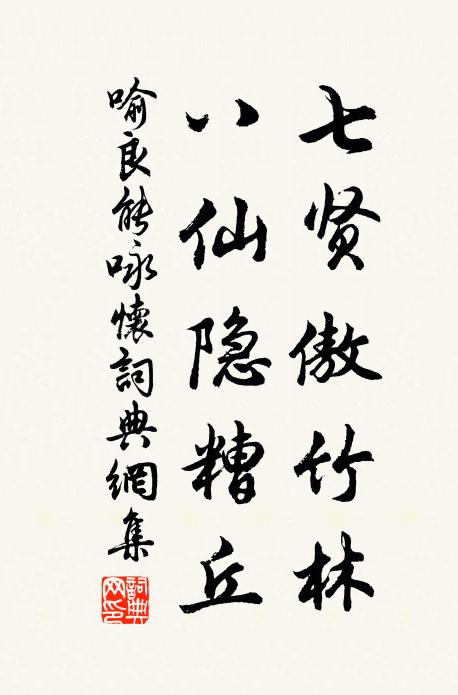 七贤傲竹林
八仙隐糟丘
喻良能咏懷詞典網集
詞典网印